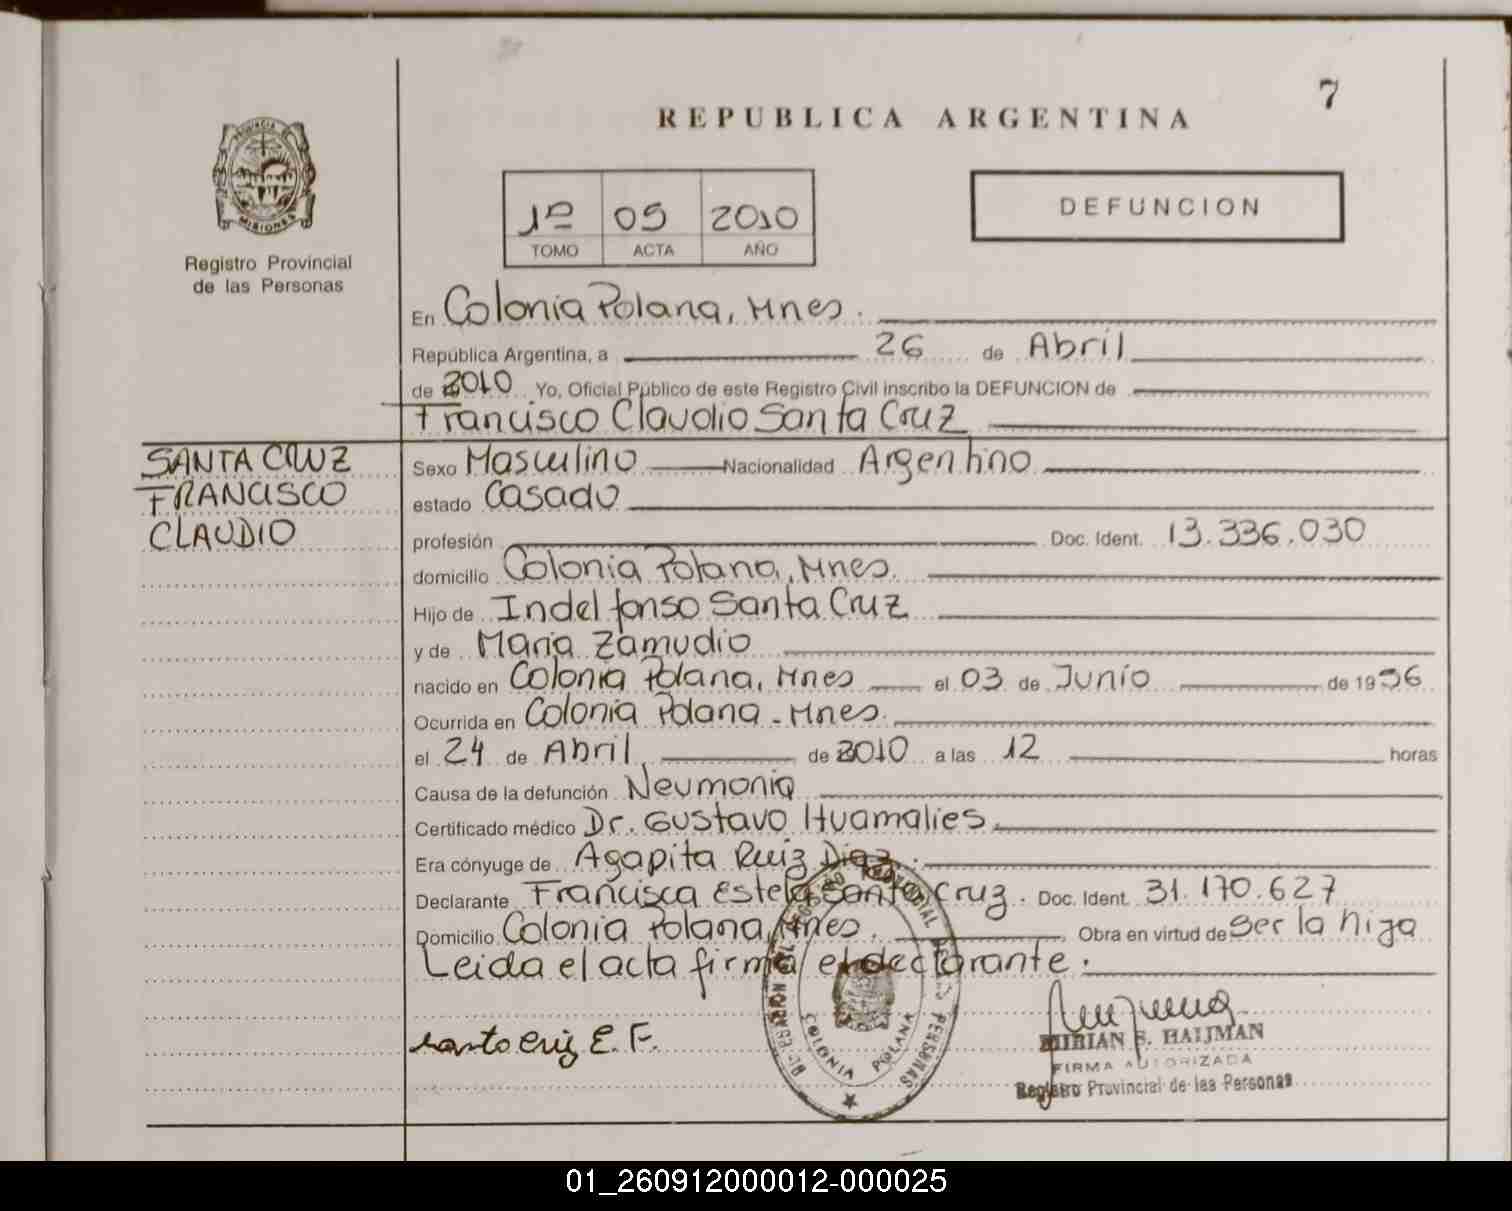 7
REPUBLICA ARGENTINA
PROVINCIA DE
MISIONES
Registro Provincial
de las Personas
1º 05 2010
TOMO ACTA AÑO
DEFUNCION
En Colonia Polana, Mnes.
República Argentina, a 26 de Abril
de 2010 Yo, Oficial Público de este Registro Civil inscribo la DEFUNCION de
Francisco Claudio Santa Cruz
SANTA CRUZ
FRANCISCO
CLAUDIO
Sexo Masculino Nacionalidad Argentino
estado Casado
profesión Doc. Ident. 13.336.030
domicilio Colonia Polana, Mnes.
Hijo de Indelfonso Santa Cruz
y de Maria Zamudio
nacido en Colonia Polana, Mnes el 03 de Junio de 1956
Ocurrida en Colonia Polana - Mnes.
el 24 de Abril de 2010 a las 12 horas
Causa de la defunción Neumonia
Certificado médico Dr. Gustavo Huamalies.
Era cónyuge de Agapita Ruiz Diaz.
Declarante Francisca Estela Santa Cruz. Doc. Ident. 31.170.627
Domicilio Colonia Polana, Mnes. Obra en virtud de ser la hija
Leida el acta firma el declarante.
santa cruz E. F.
COLONIA POLANA
MIRIAN S. HAIJMAN
FIRMA AUTORIZADA
Registro Provincial de las Personas
01_260912000012-000025